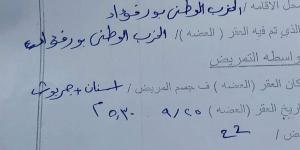 محل الاقامه / الحزب الوطنى بورفؤاد
الذي تم فيه العقر ( العضه ) / الحزب الوطنى بورفؤاد
واسطه التمريض
مكان العقر ( العضه ) ف جسم المريض / اسنان + جروح
تاريخ العقر ( العضه ) ٩/٢٥ ٥,٣٠ م